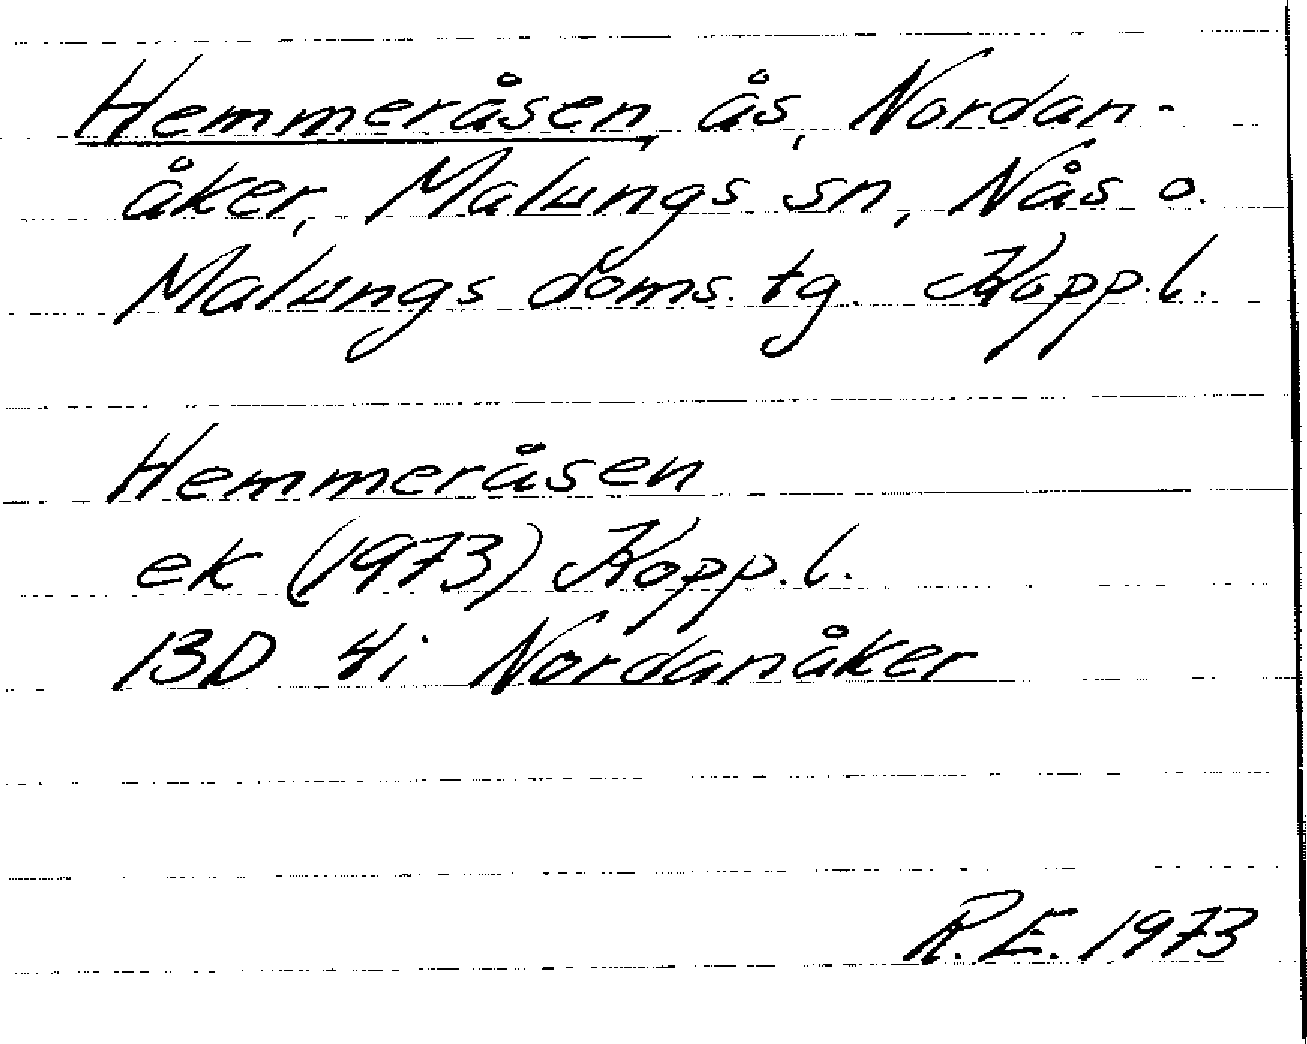 Hemmeråsen, ås, Nordan-
åker, Malungs sn, Nås o.
Malungs doms. tg. Kopp.l.
Hemmeråsen
ek (1973) Kopp.l.
13D 4i Nordanåker
R.E. 1973